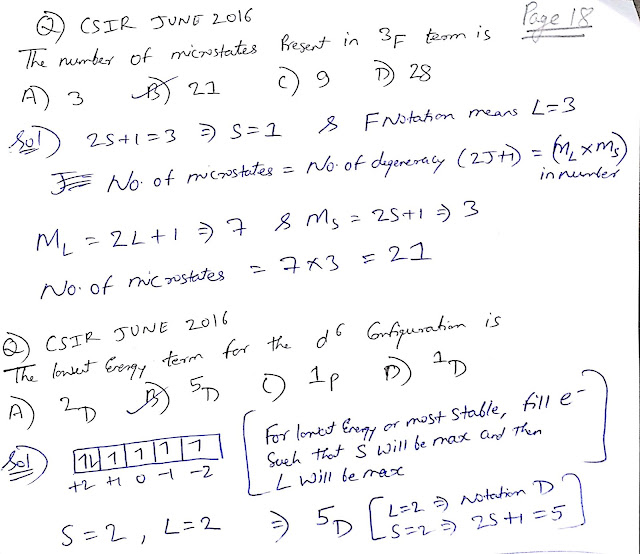 Page 18
Q) CSIR JUNE 2016
The number of microstates Present in 3F term is
A) 3 B) 21 C) 9 D) 28
Sol) 2S+1=3 ⇒ S=1 & F Notation means L=3
No. of microstates = No. of degeneracy (2J+1) = (M_L × M_S) in number
M_L = 2L+1 ⇒ 7 & M_S = 2S+1 ⇒ 3
No. of microstates = 7×3 = 21
Q) CSIR JUNE 2016
The lowest Energy term for the d⁶ Configuration is
A) ²D B) ⁵D C) 1P D) ¹D
Sol) 1L 1 1 1 1
+2 +1 0 -1 -2
[For lowest Energy or most stable, fill e⁻
Such that S will be max and Then
L will be max]
S=2, L=2 ⇒ ⁵D [L=2 ⇒ Notation D
S=2 ⇒ 2S+1=5]